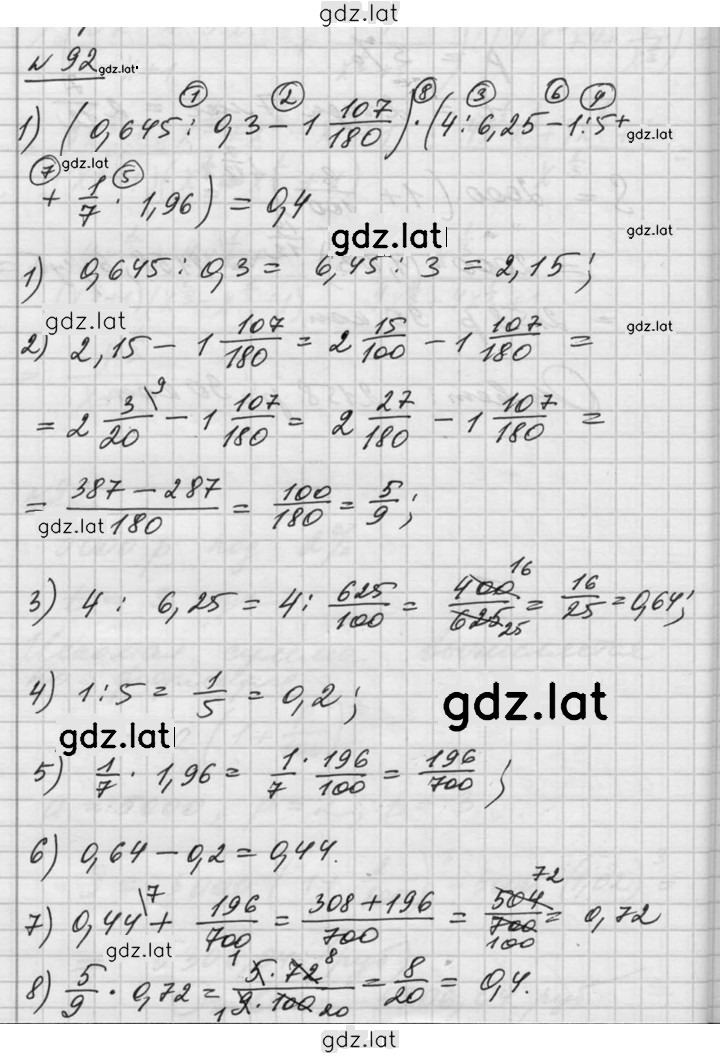 gdz.lat
№ 92 gdz.lat
① ② ⑧ ③ ⑥ ④
1) (0,645 : 0,3 − 1 107/180) · (4 : 6,25 − 1 : 5 + gdz.lat
⑦ gdz.lat ⑤
+ 1/7 · 1,96) = 0,4
gdz.lat gdz.lat
1) 0,645 : 0,3 = 6,45 : 3 = 2,15;
gdz.lat gdz.lat
2) 2,15 − 1 107/180 = 2 15/100 − 1 107/180 =
= 2 3\9/20 − 1 107/180 = 2 27/180 − 1 107/180 =
= 387 − 287/180 = 100/180 = 5/9;
gdz.lat
3) 4 : 6,25 = 4 : 625/100 = 400 16/625 25 = 16/25 = 0,64;
4) 1 : 5 = 1/5 = 0,2;
gdz.lat
gdz.lat
5) 1/7 · 1,96 = 1/7 · 196/100 = 196/700;
6) 0,64 − 0,2 = 0,44.
7) 0,44\7 + 196/700 = 308 + 196/700 = 504 72/700 100 = 0,72
gdz.lat
8) 5/9 · 0,72 = 1 5 · 72 8/1 9 · 100 20 = 8/20 = 0,4.
gdz.lat